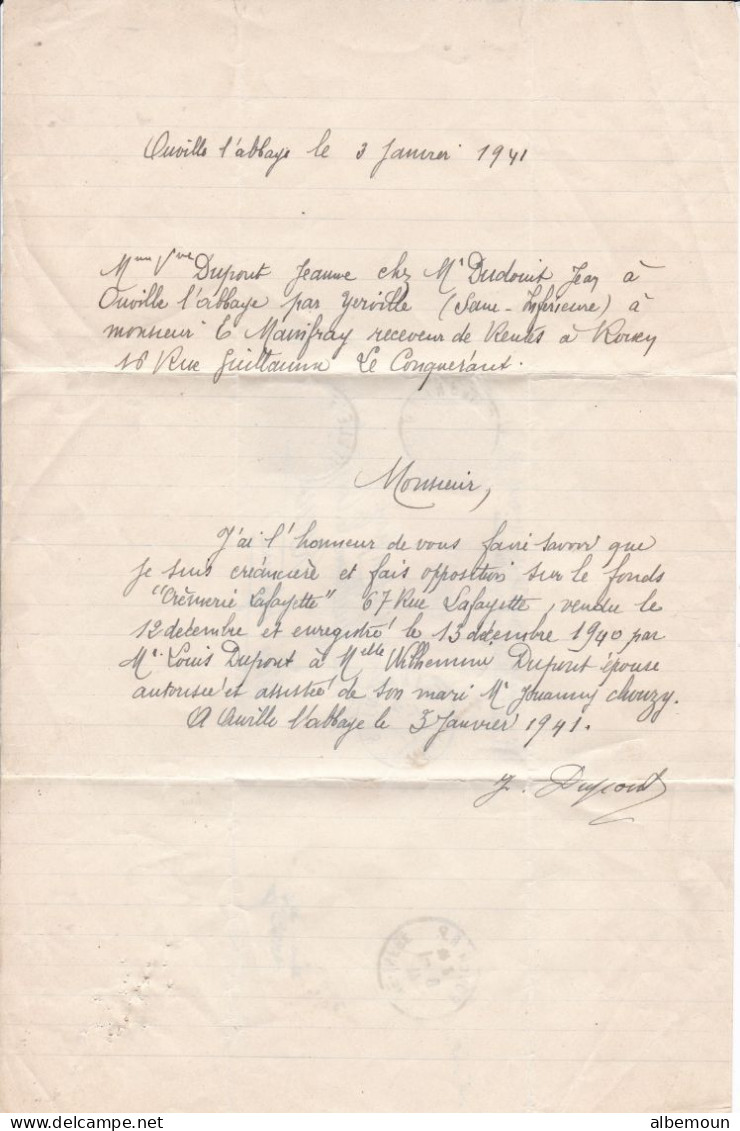 Ouville l'abbaye le 3 Janvier 1941
Mme Vve Dupont Jeanne chez Mr Dudouit Jean à
Ouville l'abbaye par Yerville (Seine-Inférieure) à
monsieur E Mainfray receveur de Rentes à Rouen
18 Rue Guillaume Le Conquérant.
Monsieur,
J'ai l'honneur de vous faire savoir que
je suis créancière et fais opposition sur le fonds
"Crêmerie Lafayette" 67 Rue Lafayette, vendu le
12 décembre et enregistré le 13 décembre 1940 par
Mr Louis Dupont à Melle Wilhemine Dupont épouse
autorisée et assistée de son mari Mr Jouanny chouzy.
A Ouville l'abbaye le 3 Janvier 1941.
J. Dupont
albemoun